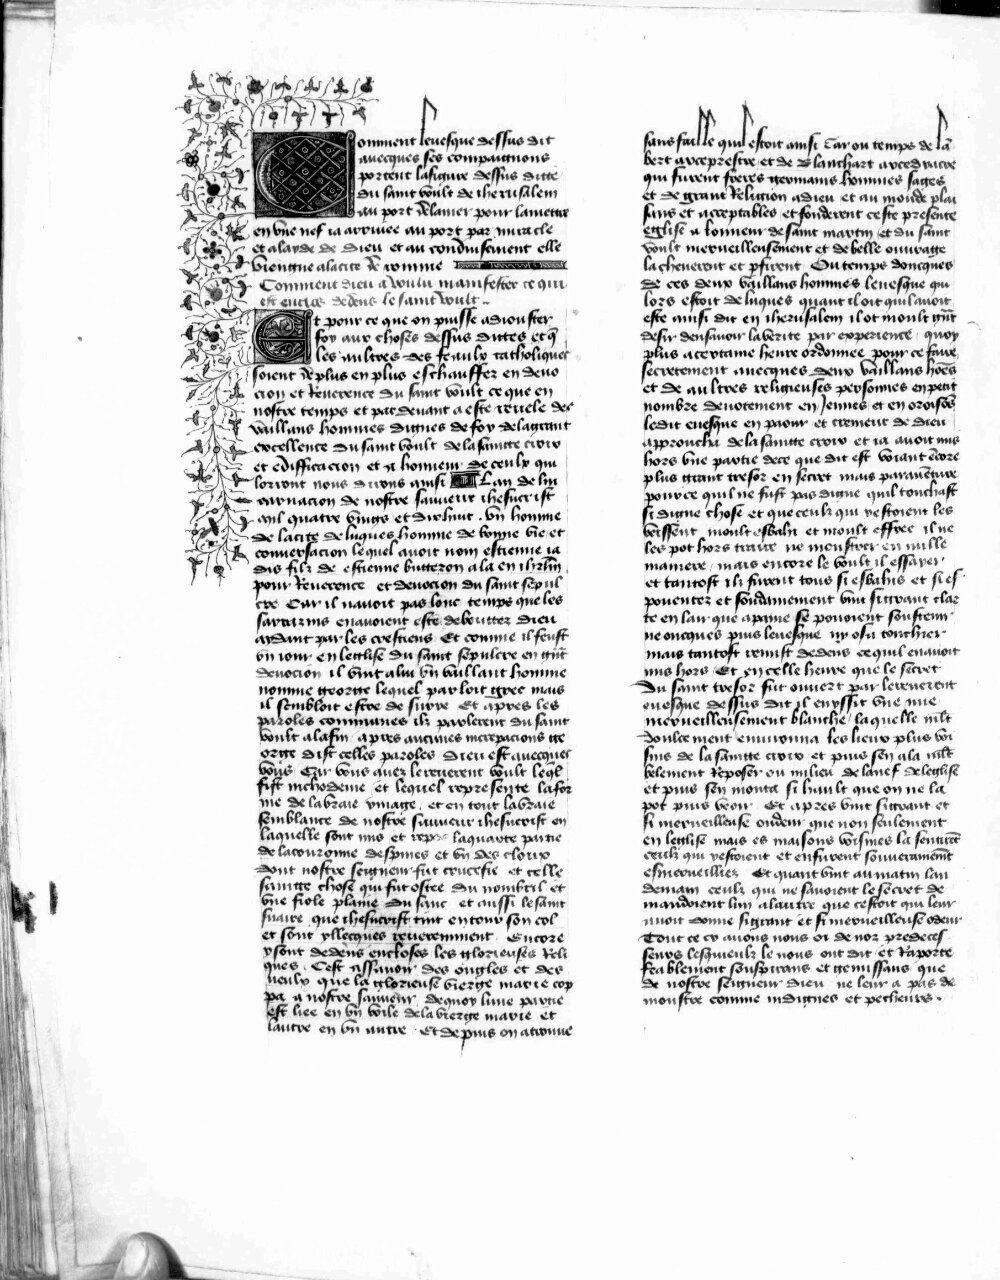 Comment levesque dessus dit
avecques ses compaignons
portent la figure dessus ditte
du saint voult de iherusalem
au port de lanier pour la mettre
en vne nef ia arriuee au port par miracle
et alayde de dieu et au conduisement elle
viengne a la cite de romme
Comment dieu a voulu manifester ce qui
est enclos dedens le saint voult
Et pour ce que on puisse adiouster
foy aux choses dessus dittes et que
les aultres des feaulx catholiques
soient de plus en plus eschauffez en deuo
cion et Reuerence du saint voult ce que en
nostre temps et par deuant a este reuele des
vaillans hommes dignes de foy de la grant
excellence du saint voult de la sainte croix
et edifficacion et a honneur de ceulx qui
lorront nous dirons ainsi Lan de lin
carnacion de nostre sauueur ihesucrist
mil quatre vings et dixhuit vn homme
de la cite de luques homme de bonne vie et
conuersacion lequel auoit nom estienne ia
dis filz de estienne butteron ala en ihrlm
pour Reuerence et deuocion du saint sepul
cre Car il nauoit pas lonc temps que les
sarrazins en auoient este deboutez dieu
aydant par les crestiens Et comme il feust
vn iour en leglise du saint sepulcre en grant
deuocion il vint a lui vn vaillant homme
nomme george lequel parloit grec mais
il sembloit estre de surie Et apres les
paroles communes ilz parlerent du saint
voult a la fin apres aucunes increpacions ge
orge dist celles paroles dieu est avecques
vous Car vous auez le reuerent voult leql
fist nichodeme et lequel represente la for
me de la vraie ymage et en tout la vraie
semblance de nostre sauueur ihesucrist en
laquelle sont mis et la quarte partie
de la couronne despines et vn des cloux
dont nostre seigneur fut crucefie et celle
sainte chose qui fut ostee du nombril et
vne fiole plaine du sanc et aussi le saint
suaire que ihesucrist tint entour son col
et sont yllecques reueremment Encore
y sont dedens encloses les glorieuses Reli
ques Cest assauoir des ongles et des
ueulx que la glorieuse vierge marie cop
pa a nostre sauueur de quoy lune partie
est liee en vn voile de la vierge marie et
lautre en vn autre Et depuis on a trouue
sans faille quil estoit ainsi Car ou temps de lam
bert arceprestre et de blanchart arcediacre
qui furent freres germains hommes sages
et de grant Religion a dieu et au monde plai
sans et acceptables et fonderent ceste presente
eglise a lonneur de saint martin et du saint
voult merueilleusement et de belle ouurage
lacheuerent et pfirent Ou temps doncques
de ces deux vaillans hommes leuesque qui
lors estoit de luques quant il oit quil auoit
este ainsi dit en iherusalem il ot moult grant
desir den sauoir la verite par experience quoy
plus a certaine heure ordonnee pour ce faire
secretement avecques deux vaillans homes
et de aultres religieuses personnes en petit
nombre deuotement en Jeunes et en oroisons
ledit euesque en paour et cremeur de dieu
approucha de la sainte croix et ia auoit mis
hors vne partie de ce que dit est voiant encore
plus grant tresor en secret mais parauenture
pource quil ne fust pas digne quil touchast
si digne chose et que ceulx qui y estoient les
veissent moult esbahi et moult effree il ne
les pot hors traire ne monstrer en nulle
maniere mais encore le voult il essayer
et tantost ilz furent tous si esbahis et si es
pouentez et soudainement vint si grant clar
te en lair que a paine se pouoient soustenir
ne oncques puis leuesque ny osa touchier
mais tantost remist dedens ce quil en auoit
mis hors Et en celle heure que le secret
du saint tresor fut ouuert par le reuerent
euesque dessus dit il en yssit vne nue
merueilleusement blanche laquelle mlt
doulcement enuironna les lieux plus voi
sins de la sainte croix et puis sen ala mlt
belement Reposer ou milieu de la nef de leglise
et puis sen monta si hault que on ne la
pot puis veoir Et apres vint si grant et
si merueilleuse oudeur que non seulement
en leglise mais es maisons voisines la sentirent
ceulx qui y estoient et en furent souuerainement
esmerueilliez Et quant vint au matin lan
demain ceulx qui ne sauoient le secret de
mandoient lun a lautre que cestoit qui leur
auoit donne si grant et si merueilleuse odeur
Tout ce cy auons nous oi de noz predeces
seurs lesquielx le nous ont dit et Raporte
feablement souspirans et gemissans que
de nostre seigneur dieu ne leur a pas de
monstre comme indignes et pecheurs .